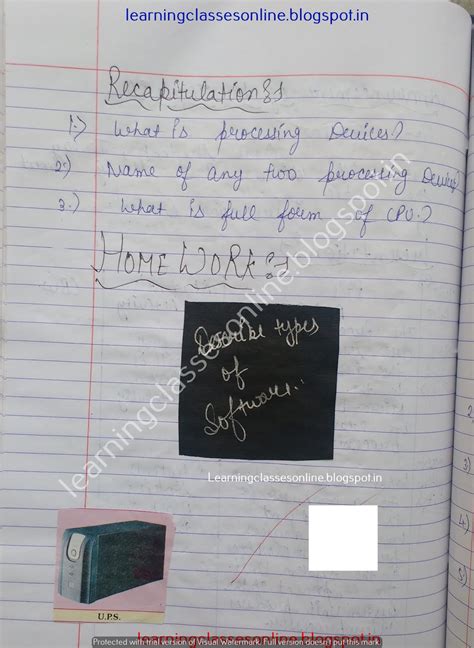 learningclassesonline.blogspot.in
Recapitulation:-
1.) What is processing Devices?
2.) Name of any two processing Devices
3.) What is full form of CPU?
HOME WORK:-
learningclassesonline.blogspot.in
Describe types
of
Software..
Learningclassesonline.blogspot.in
2
3)
4)
5)
U.P.S.
learningclassesonline.blogspot.in
Protected with trial version of Visual Watermark. Full version doesn't put this mark.